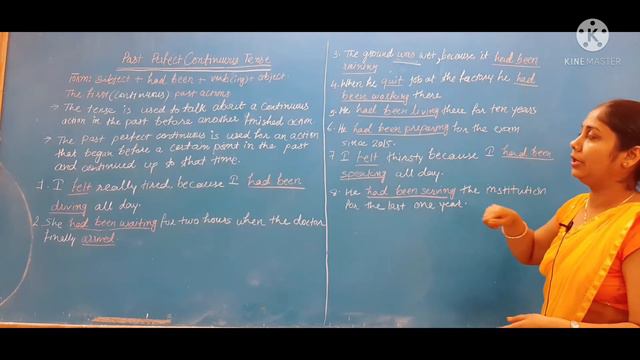 Past Perfect Continuous Tense
Form: Subject + had been + verb(ing) + object.
The first (continuous) past actions
→ The tense is used to talk about a continuous
action in the past before another finished action
→ The past perfect continuous is used for an action
that began before a certain point in the past
and continued up to that time.
1. I felt really tired, because I had been
driving all day.
2. She had been waiting for two hours when the doctor
finally arrived.
3. The ground was wet, because it had been
raining
4. When he quit job at the factory he had
been working there
5. He had been living there for ten years
6. He had been preparing for the exam
since 2015.
7. I felt thirsty because I had been
speaking all day.
8. He had been serving the institution
for the last one year.
KINEMASTER